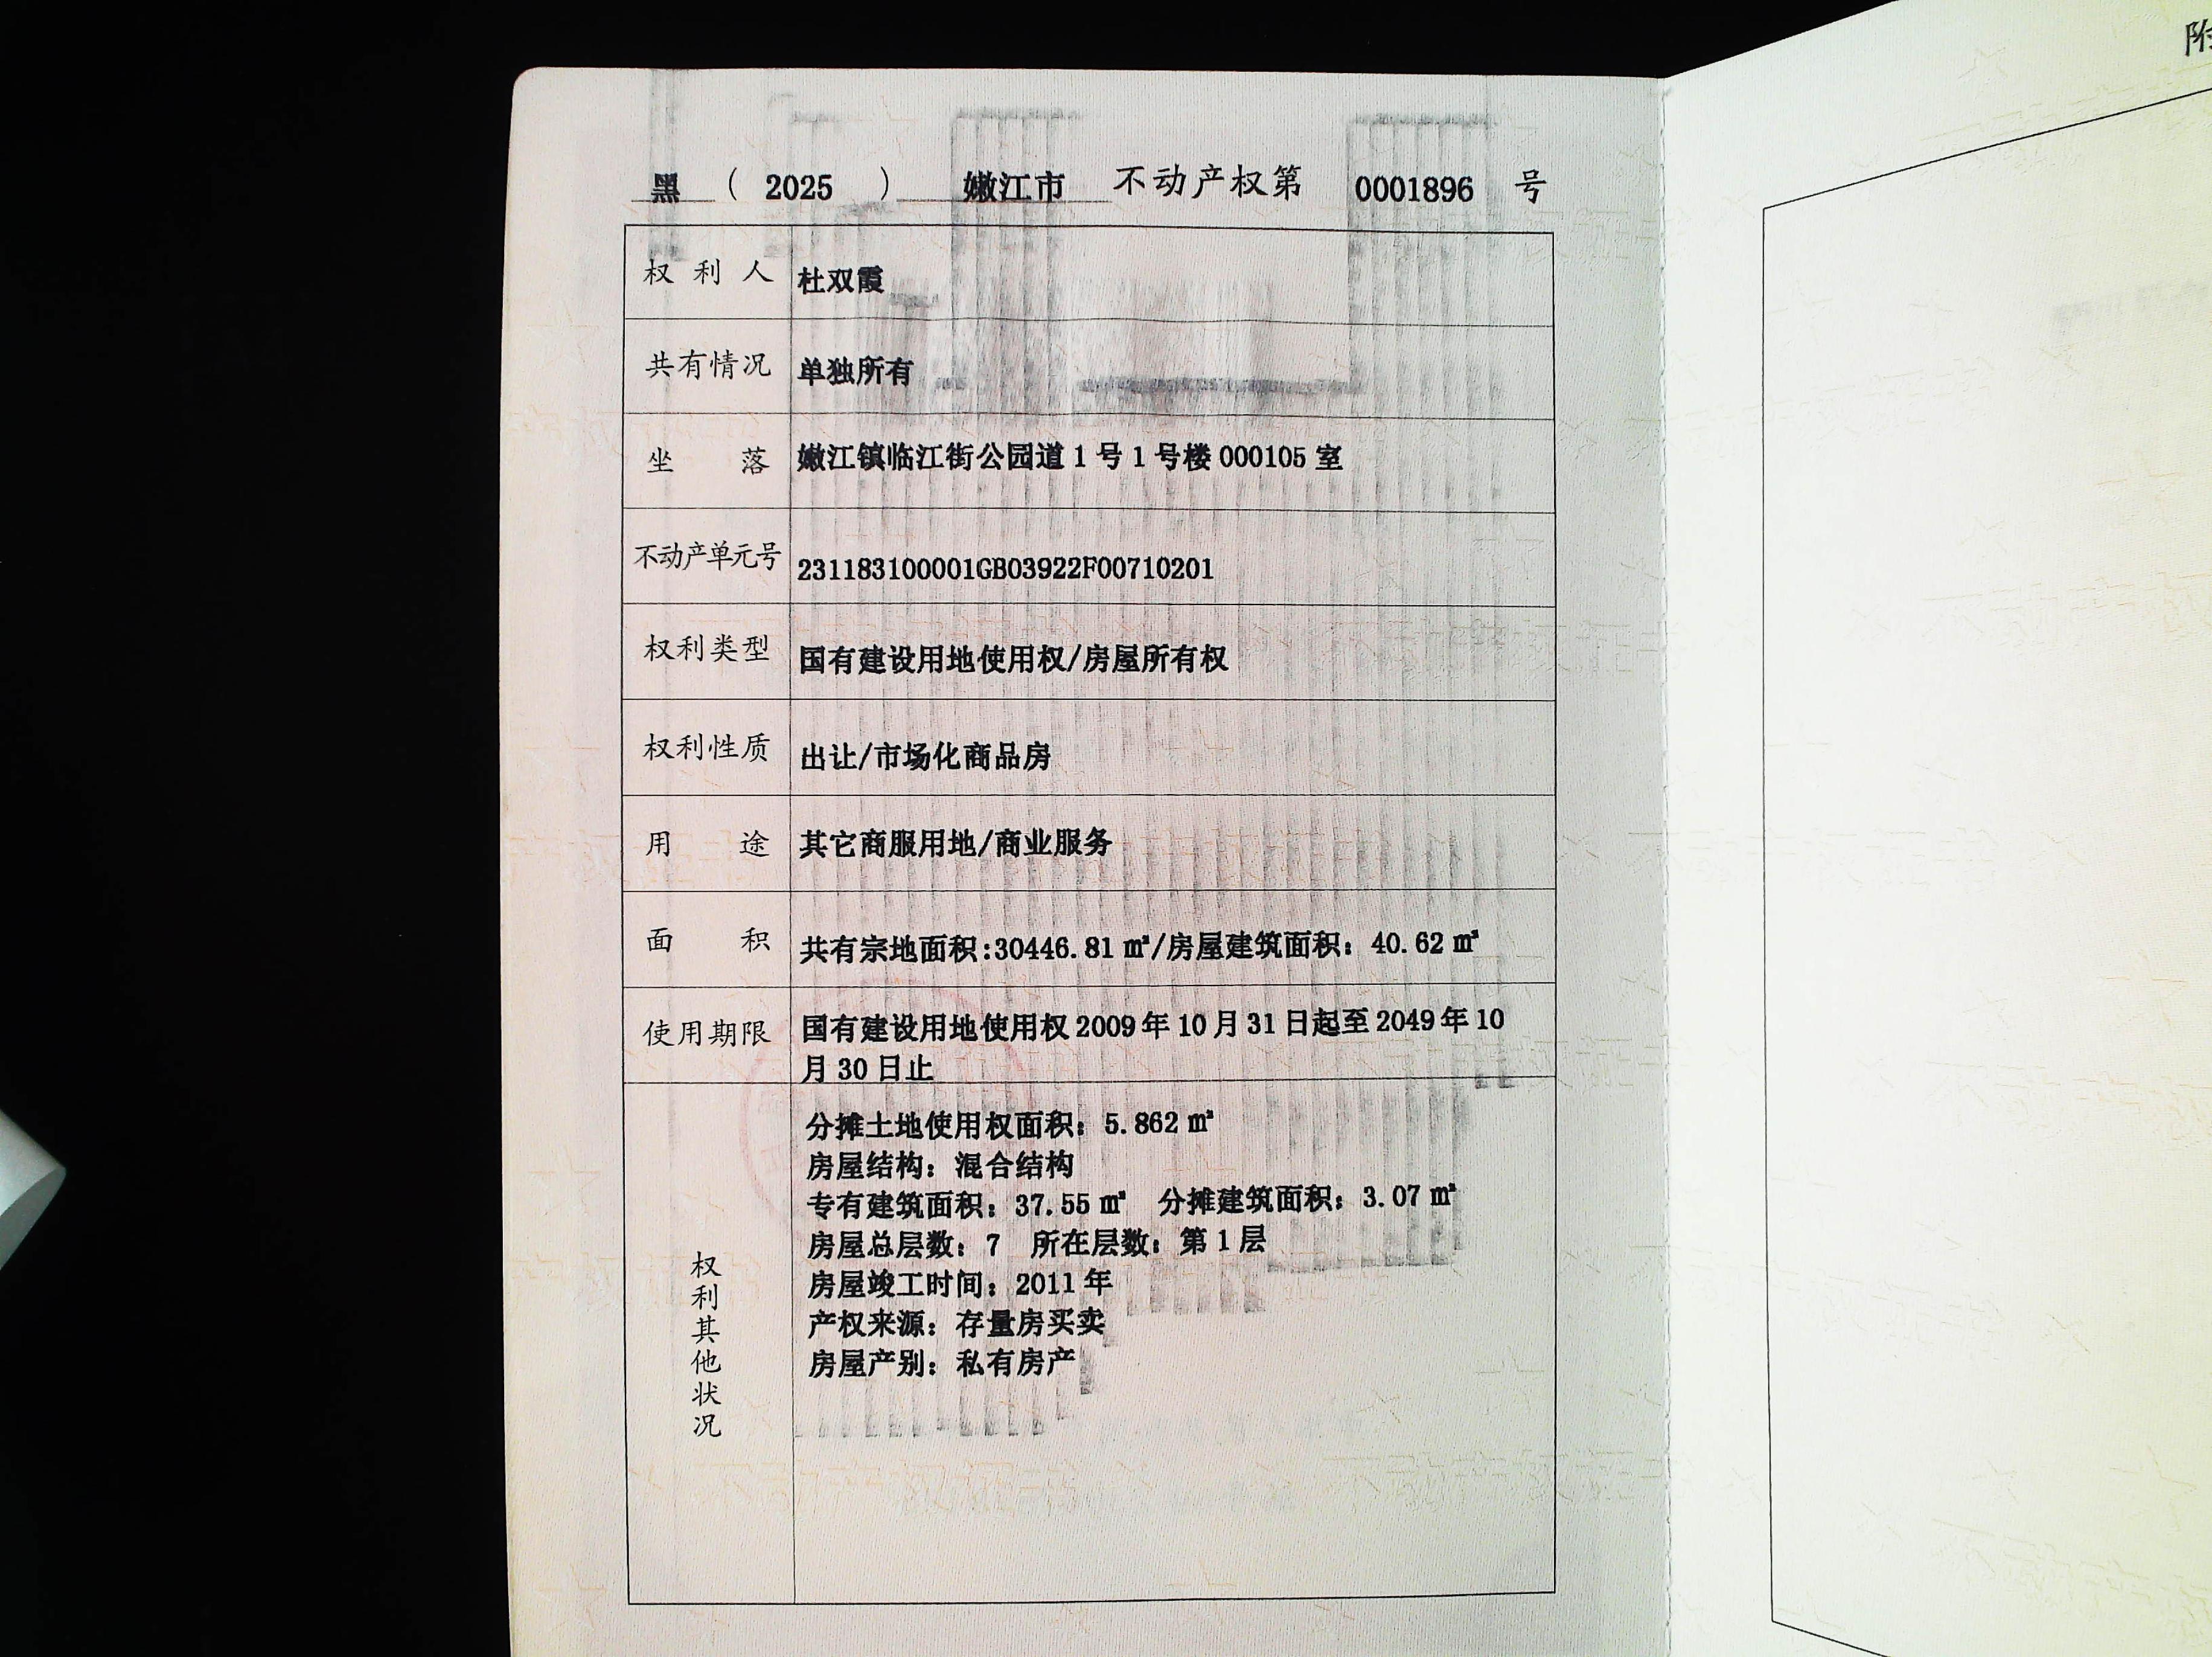 黑 ( 2025 ) 嫩江市 不动产权第 0001896 号
权利人 杜双霞
共有情况 单独所有
坐落 嫩江镇临江街公园道1号1号楼000105室
不动产单元号 231183100001GB03922F00710201
权利类型 国有建设用地使用权/房屋所有权
权利性质 出让/市场化商品房
用途 其它商服用地/商业服务
面积 共有宗地面积:30446.81㎡/房屋建筑面积：40.62㎡
使用期限 国有建设用地使用权2009年10月31日起至2049年10
月30日止
权利其他状况
分摊土地使用权面积：5.862㎡
房屋结构：混合结构
专有建筑面积：37.55㎡ 分摊建筑面积：3.07㎡
房屋总层数：7 所在层数：第1层
房屋竣工时间：2011年
产权来源：存量房买卖
房屋产别：私有房产
附